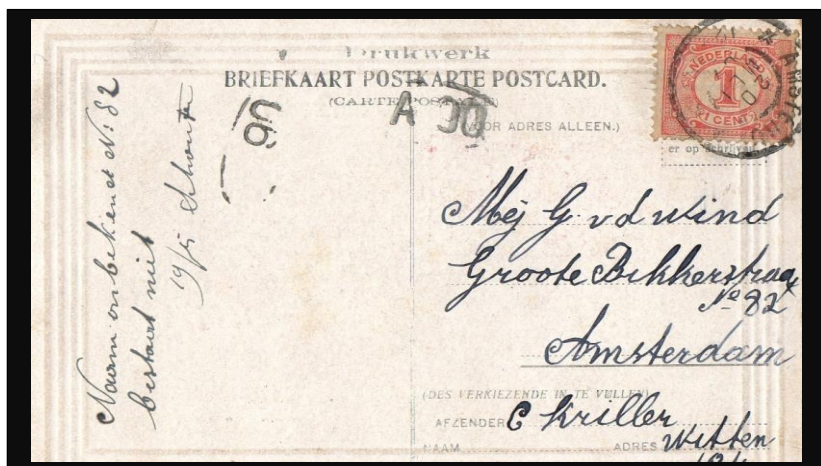 Drukwerk
BRIEFKAART POSTKARTE POSTCARD.
(CARTE POSTALE)
(VOOR ADRES ALLEEN.)
NEDERLAND
1
1 CENT
er op schrijven
A
Mej G. v d Wind
Groote Bikkerstraat
No 82
Amsterdam
(DES VERKIEZENDE IN TE VULLEN)
AFZENDER C Kriller
NAAM ADRES Witten
Naam onbekend No 82
bestaat niet
19/5 Schoute